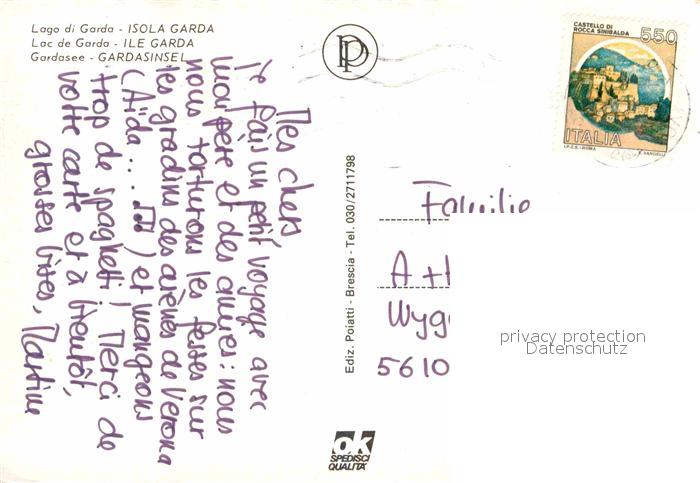 Lago di Garda - ISOLA GARDA
Lac de Garda - ILE GARDA
Gardasee - GARDASINSEL
Mes chers
je fais un petit voyage avec
mon père et des amies : nous
nous torturons les fesses sur
les gradins des arènes de Verona
(Aïda... ) et mangeons
trop de spaghetti. Merci de
votre carte et à bientôt,
grosses bises, Martine
Ediz. Poiatti - Brescia - Tel. 030/2711798
P
CASTELLO DI
ROCCA SINIBALDA
550
ITALIA
I.P.Z.S. - ROMA
E. VANGELLI
Familie
A + H
Wyg
5610
privacy protection
Datenschutz
ok
SPEDISCI
QUALITÀ